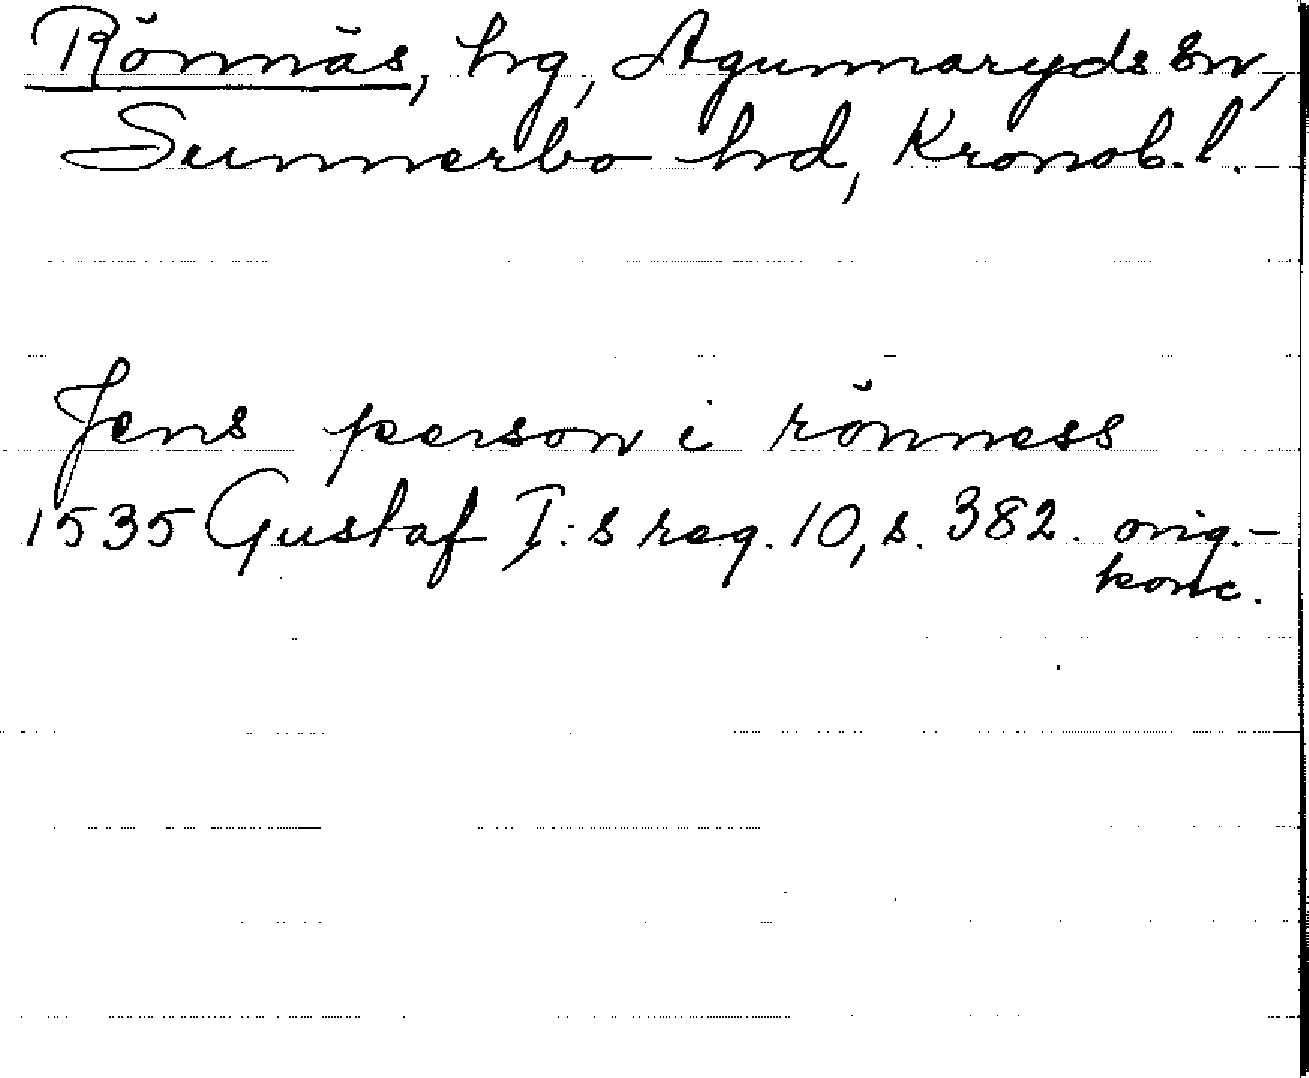 Rönnäs, hg, Agunnaryds sn,
Sunnerbo hd, Kronob. l.
Jens person i rönness
1535 Gustaf I:s reg. 10, s. 382. orig.-
konc.